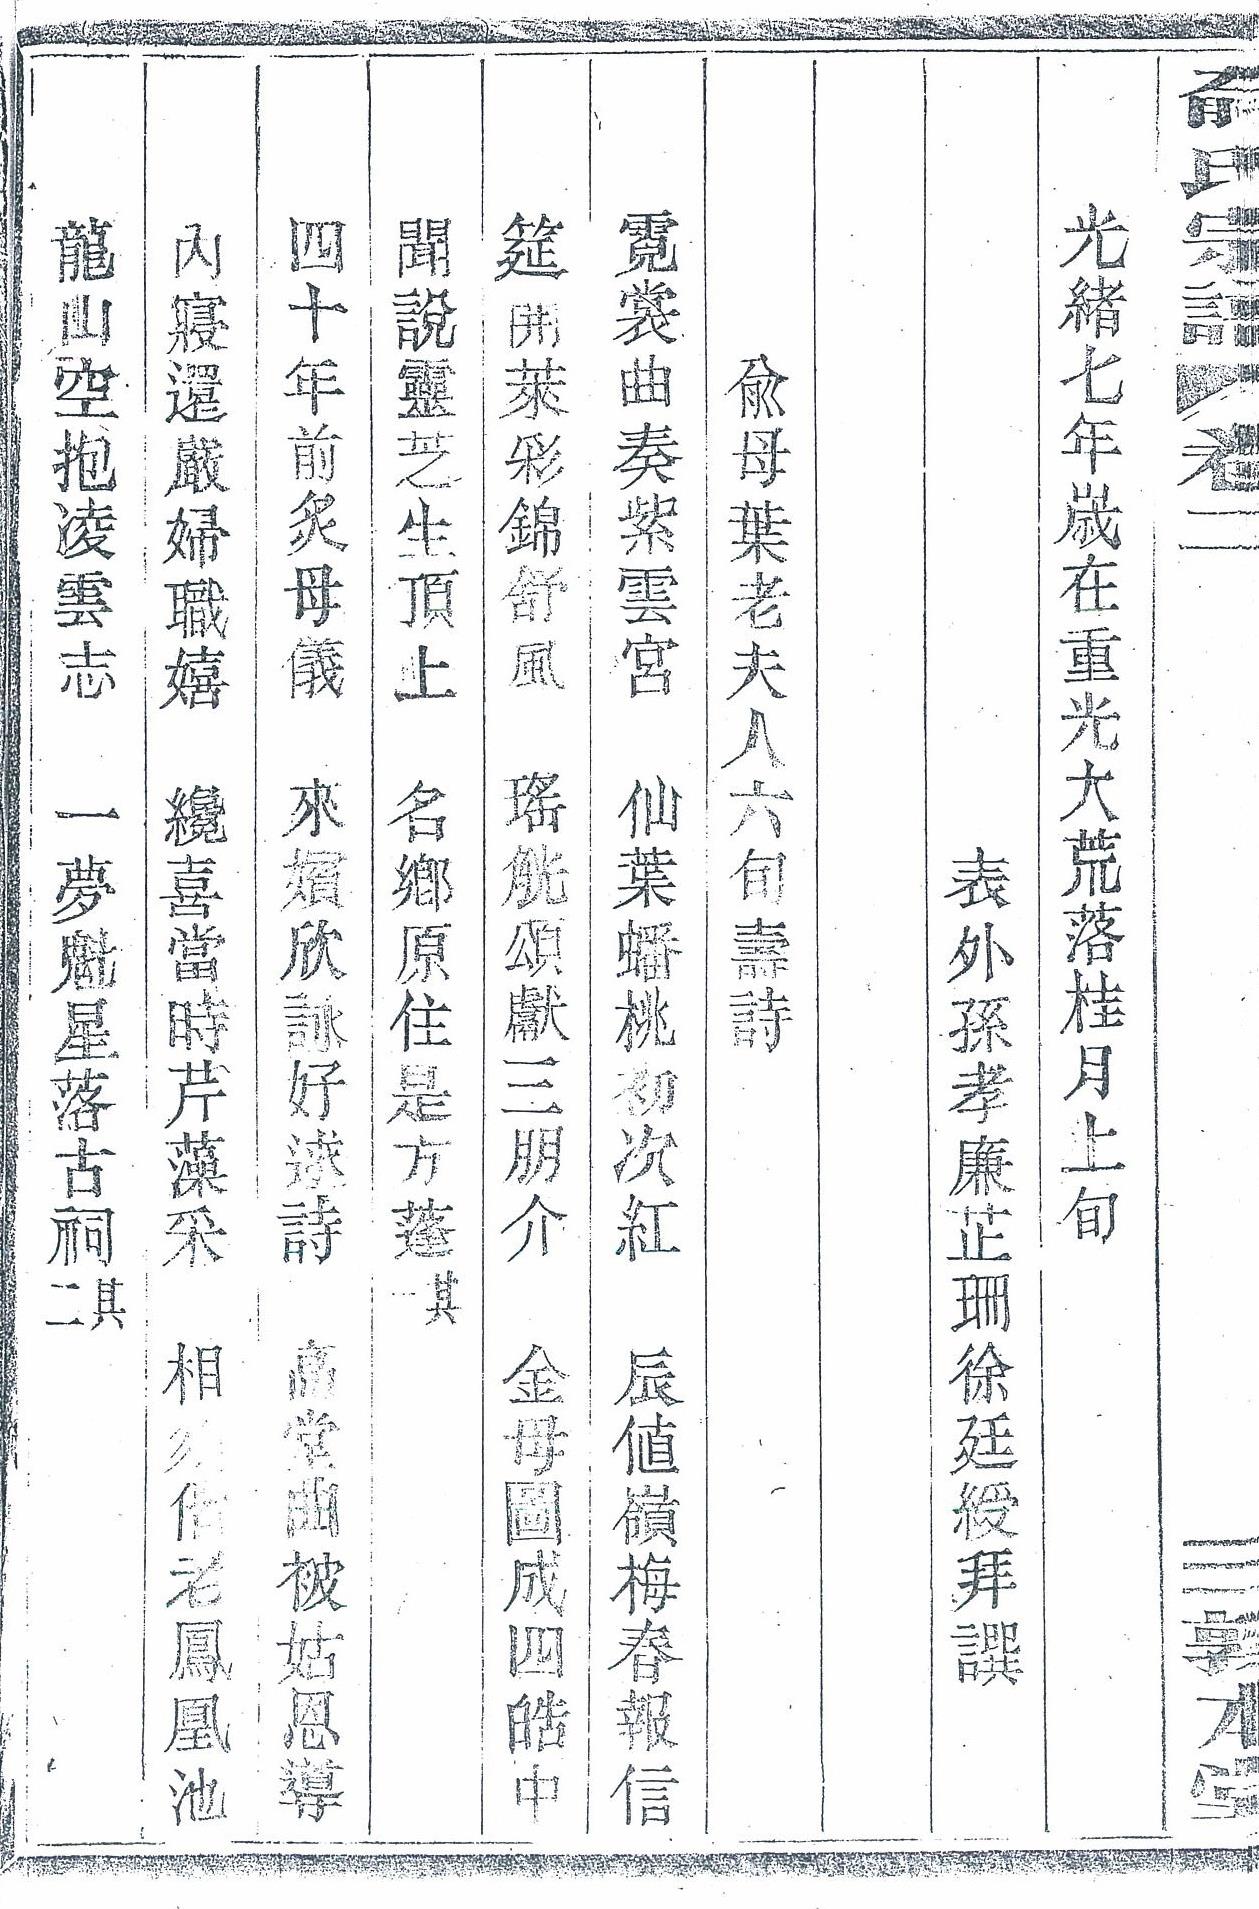 俞氏宗譜 卷二 敦本堂
光緒七年歲在重光大荒落桂月上旬
表外孫孝廉芷珊徐廷綬拜譔
俞母葉老夫人六旬壽詩
霓裳曲奏紫雲宮 仙葉蟠桃初次紅 辰値嶺梅春報信
筵開萊彩錦舒風 瑤觥頌獻三朋介 金母圖成四皓中
聞說靈芝生頂上 名鄉原住是方蓬 其一
四十年前炙母儀 來嬪欣詠好逑詩 高堂曲被姑恩導
內寢還嚴婦職嬉 纔喜當時芹藻采 相 偕老鳳凰池
龍山空抱凌雲志 一夢魁星落古祠 其二